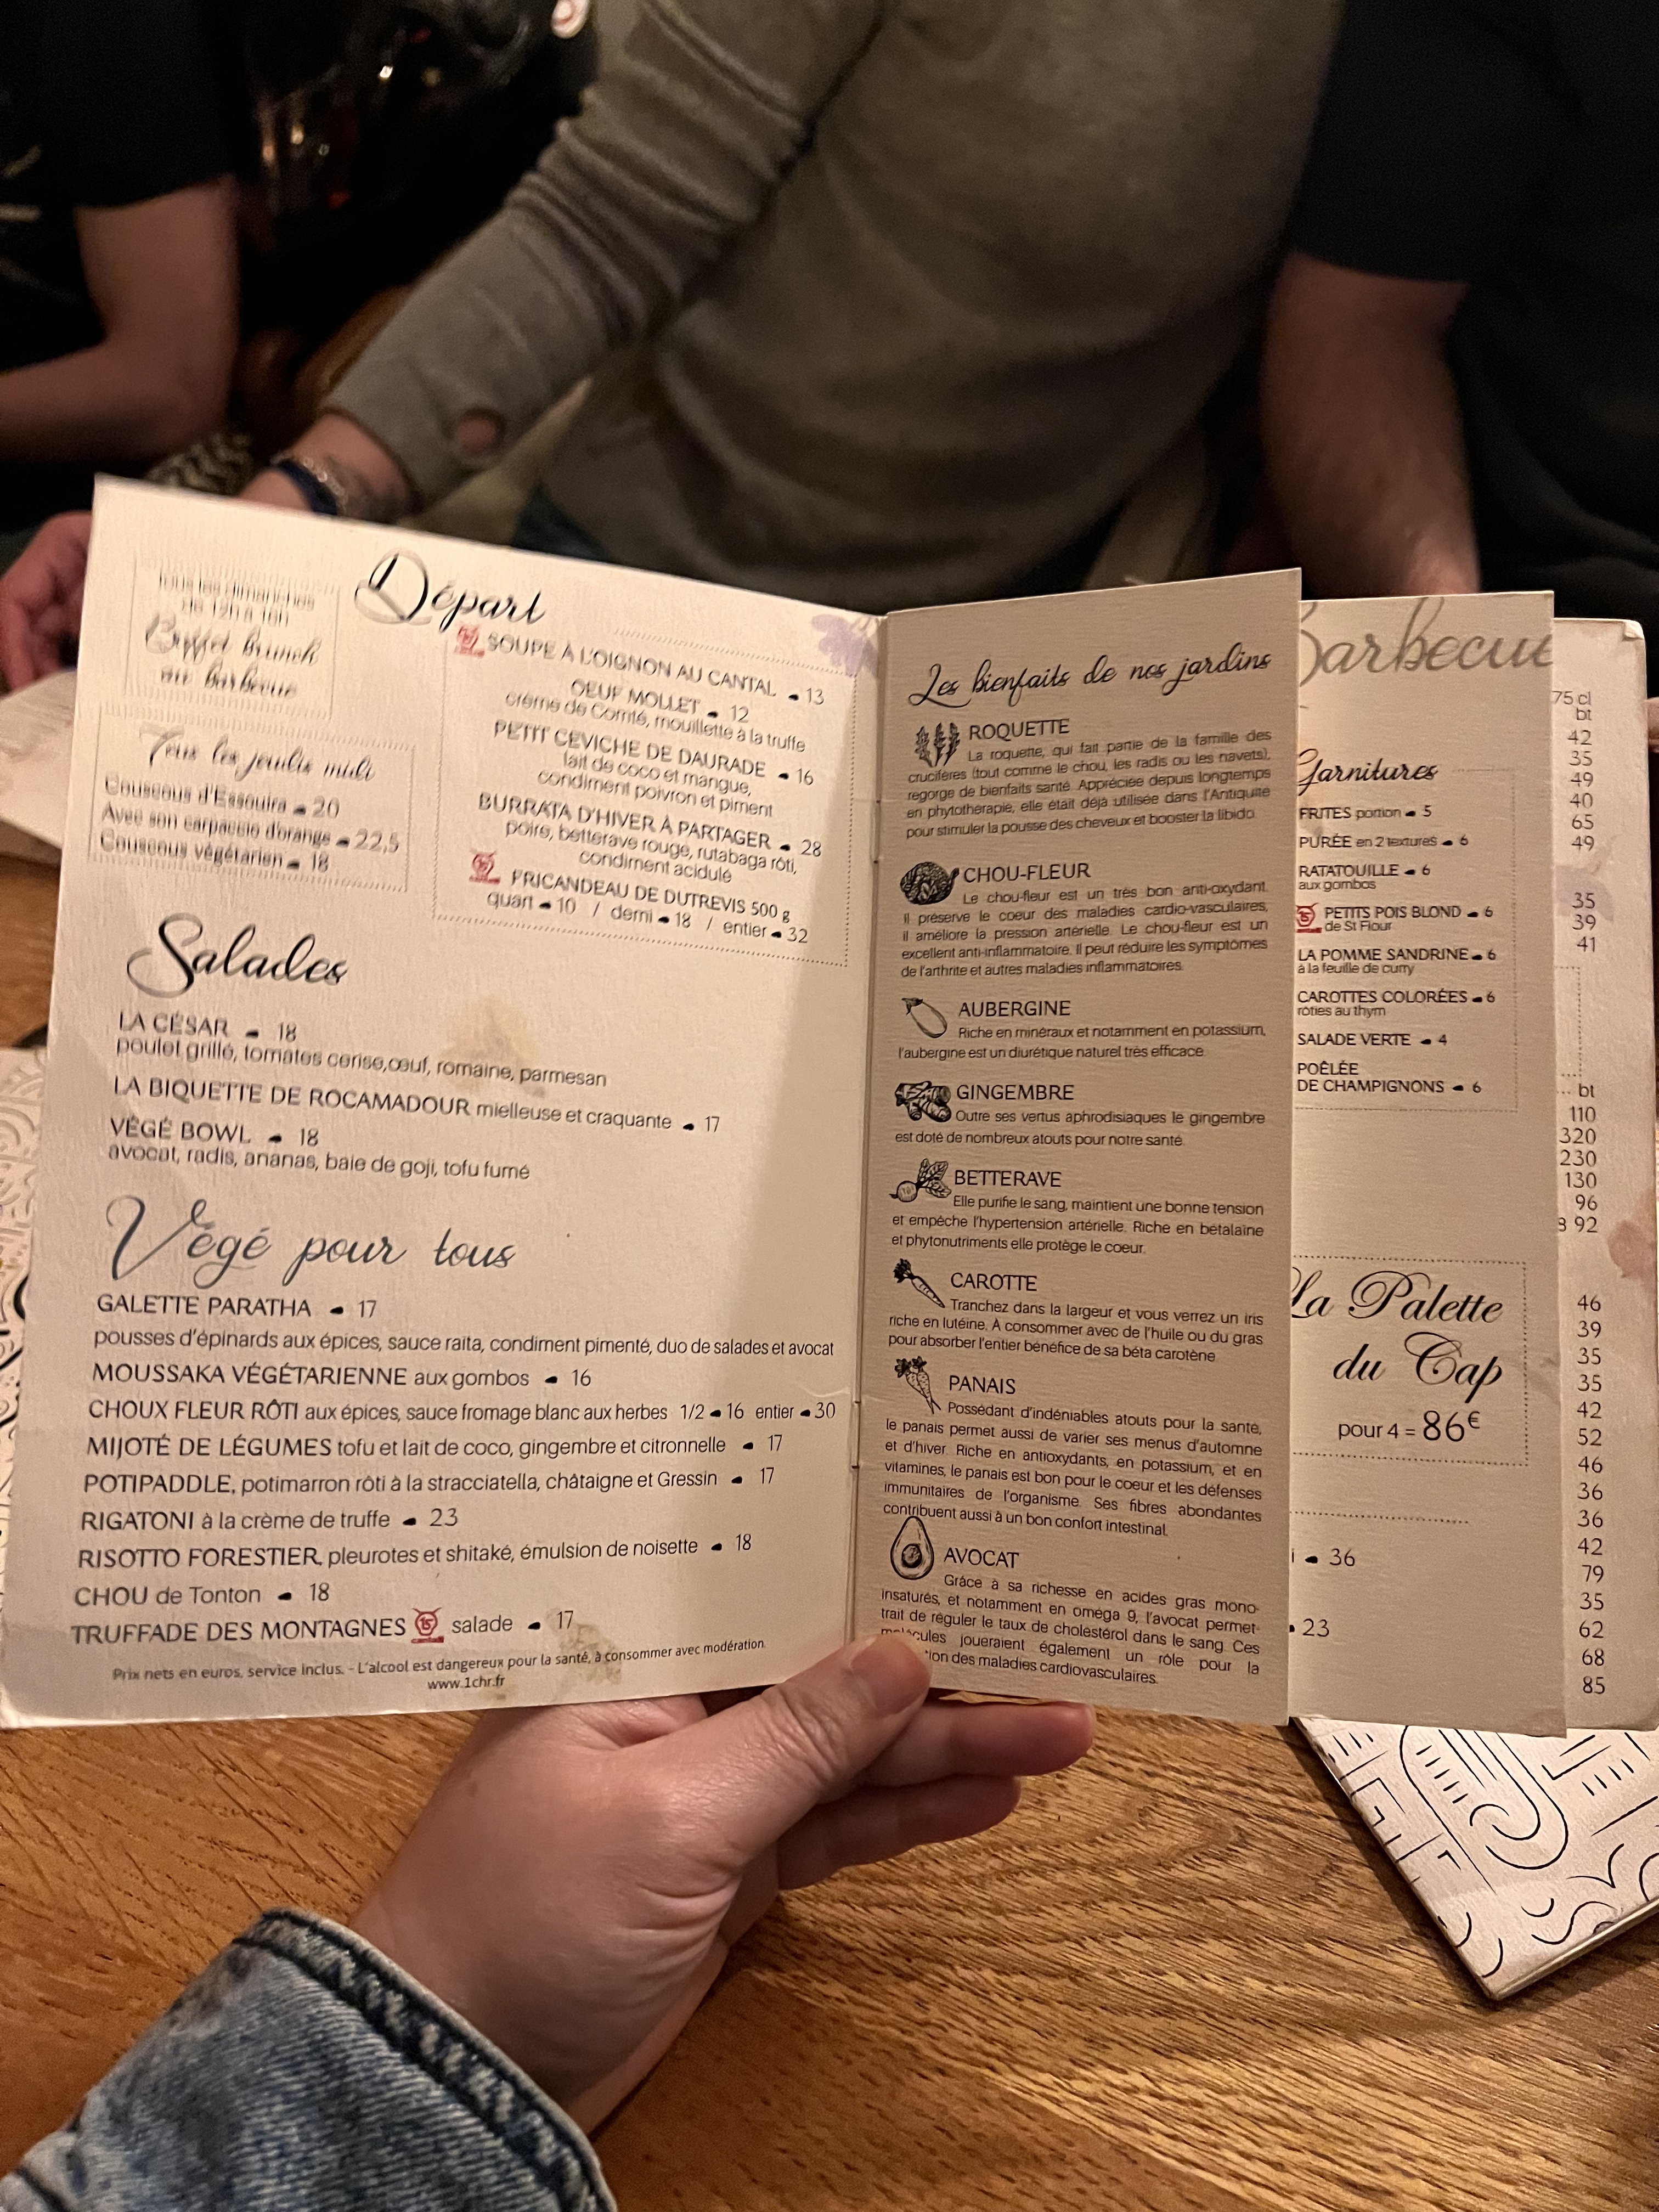 Tous les dimanches
de 12h à 16h
Buffet brunch
au barbecue
Tous les jeudis midi
Couscous d'Essouira 20
Avec son carpaccio d'orange 22,5
Couscous végétarien 18
Départ
SOUPE À L'OIGNON AU CANTAL 13
OEUF MOLLET 12
crème de Comté, mouillette à la truffe
PETIT CEVICHE DE DAURADE 16
lait de coco et mangue,
condiment poivron et piment
BURRATA D'HIVER À PARTAGER 28
poire, betterave rouge, rutabaga rôti,
condiment acidulé
15 FRICANDEAU DE DUTREVIS 500 g
quart 10 / demi 18 / entier 32
Salades
LA CÉSAR 18
poulet grillé, tomates cerise,œuf, romaine, parmesan
LA BIQUETTE DE ROCAMADOUR mielleuse et craquante 17
VÉGÉ BOWL 18
avocat, radis, ananas, baie de goji, tofu fumé
Végé pour tous
GALETTE PARATHA 17
pousses d'épinards aux épices, sauce raïta, condiment pimenté, duo de salades et avocat
MOUSSAKA VÉGÉTARIENNE aux gombos 16
CHOUX FLEUR RÔTI aux épices, sauce fromage blanc aux herbes 1/2 16 entier 30
MIJOTÉ DE LÉGUMES tofu et lait de coco, gingembre et citronnelle 17
POTIPADDLE, potimarron rôti à la stracciatella, châtaigne et Gressin 17
RIGATONI à la crème de truffe 23
RISOTTO FORESTIER, pleurotes et shitaké, émulsion de noisette 18
CHOU de Tonton 18
TRUFFADE DES MONTAGNES 15 salade 17
Prix nets en euros, service inclus. - L'alcool est dangereux pour la santé, à consommer avec modération.
www.1chr.fr
Les bienfaits de nos jardins
ROQUETTE
La roquette, qui fait partie de la famille des
crucifères (tout comme le chou, les radis ou les navets),
regorge de bienfaits santé. Appréciée depuis longtemps
en phytothérapie, elle était déjà utilisée dans l'Antiquité
pour stimuler la pousse des cheveux et booster la libido.
CHOU-FLEUR
Le chou-fleur est un très bon anti-oxydant.
Il préserve le coeur des maladies cardio-vasculaires,
il améliore la pression artérielle. Le chou-fleur est un
excellent anti-inflammatoire. Il peut réduire les symptômes
de l'arthrite et autres maladies inflammatoires.
AUBERGINE
Riche en minéraux et notamment en potassium,
l'aubergine est un diurétique naturel très efficace.
GINGEMBRE
Outre ses vertus aphrodisiaques le gingembre
est doté de nombreux atouts pour notre santé.
BETTERAVE
Elle purifie le sang, maintient une bonne tension
et empêche l'hypertension artérielle. Riche en bétalaïne
et phytonutriments elle protège le coeur.
CAROTTE
Tranchez dans la largeur et vous verrez un iris
riche en lutéine. A consommer avec de l'huile ou du gras
pour absorber l'entier bénéfice de sa béta carotène.
PANAIS
Possédant d'indéniables atouts pour la santé,
le panais permet aussi de varier ses menus d'automne
et d'hiver. Riche en antioxydants, en potassium, et en
vitamines, le panais est bon pour le coeur et les défenses
immunitaires de l'organisme. Ses fibres abondantes
contribuent aussi à un bon confort intestinal.
AVOCAT
Grâce à sa richesse en acides gras mono-
insaturés, et notamment en oméga 9, l'avocat permet-
trait de réguler le taux de cholestérol dans le sang. Ces
molécules joueraient également un rôle pour la
des maladies cardiovasculaires.
Barbecue
Garnitures
FRITES portion 5
PURÉE en 2 textures 6
RATATOUILLE 6
aux gombos
15 PETITS POIS BLOND 6
de St Flour
LA POMME SANDRINE 6
à la feuille de curry
CAROTTES COLORÉES 6
rôties au thym
SALADE VERTE 4
POÊLÉE
DE CHAMPIGNONS 6
La Palette
du Cap
pour 4 = 86€
36
23
75 cl
bt
42
35
49
40
65
49
35
39
41
bt
110
320
230
130
96
92
46
39
35
35
42
52
46
36
36
42
79
35
62
68
85